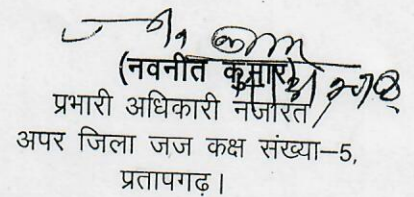 (नवनीत कुमार)
प्रभारी अधिकारी नजारत
अपर जिला जज कक्ष संख्या–5,
प्रतापगढ़।